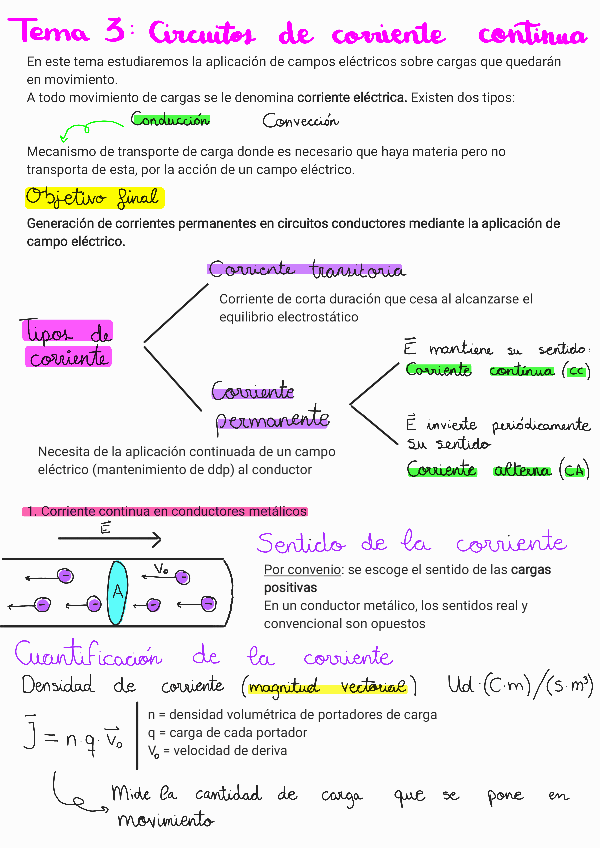 Tema 3: Circuitos de corriente continua
En este tema estudiaremos la aplicación de campos eléctricos sobre cargas que quedarán
en movimiento.
A todo movimiento de cargas se le denomina corriente eléctrica. Existen dos tipos:
Conducción Convección
Mecanismo de transporte de carga donde es necesario que haya materia pero no
transporta de esta, por la acción de un campo eléctrico.
Objetivo final
Generación de corrientes permanentes en circuitos conductores mediante la aplicación de
campo eléctrico.
Corriente transitoria
Corriente de corta duración que cesa al alcanzarse el
equilibrio electrostático
Tipos de
corriente
Corriente
permanente
E⃗ mantiene su sentido:
Corriente continua (CC)
E⃗ invierte periódicamente
su sentido
Corriente alterna (CA)
Necesita de la aplicación continuada de un campo
eléctrico (mantenimiento de ddp) al conductor
1. Corriente continua en conductores metálicos
E⃗
V₀
A
Sentido de la corriente
Por convenio: se escoge el sentido de las cargas
positivas
En un conductor metálico, los sentidos real y
convencional son opuestos
Cuantificación de la corriente
Densidad de corriente (magnitud vectorial) Ud·(C·m)/(s·m³)
J⃗ = n·q·v⃗₀
n = densidad volumétrica de portadores de carga
q = carga de cada portador
V₀ = velocidad de deriva
Mide la cantidad de carga que se pone en
movimiento